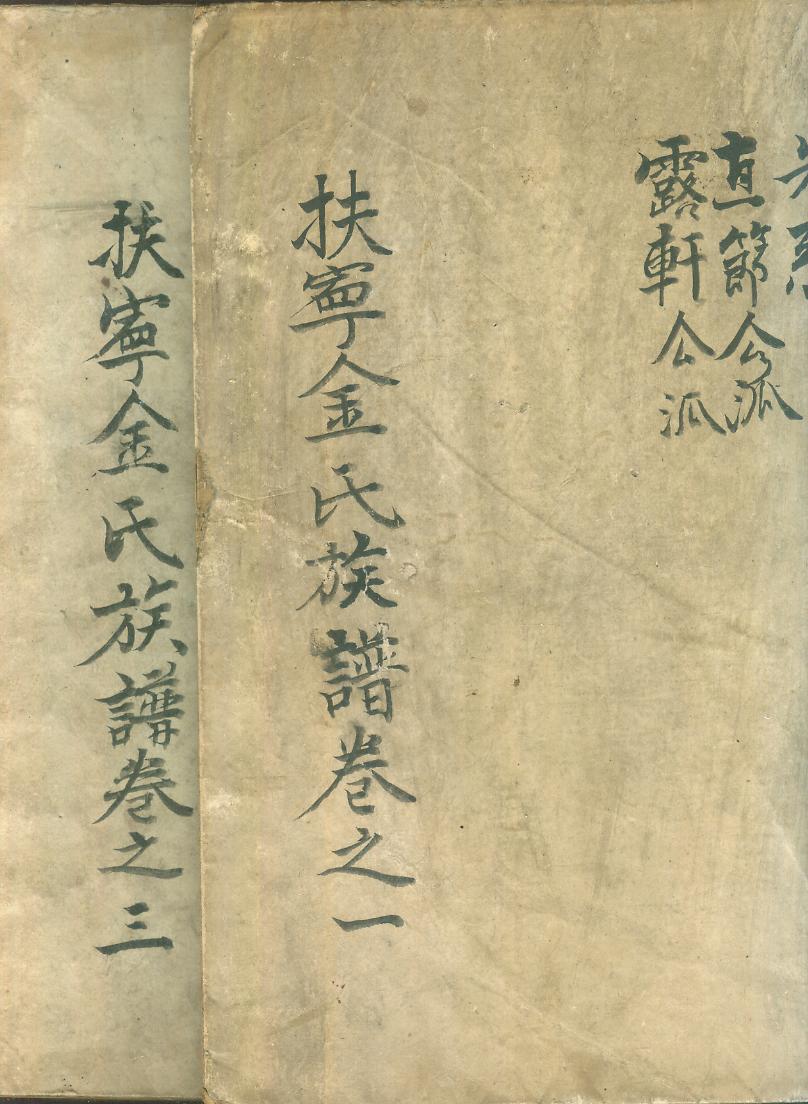 先系
直節公派
露軒公派
扶寧金氏族譜卷之一
扶寧金氏族譜卷之三